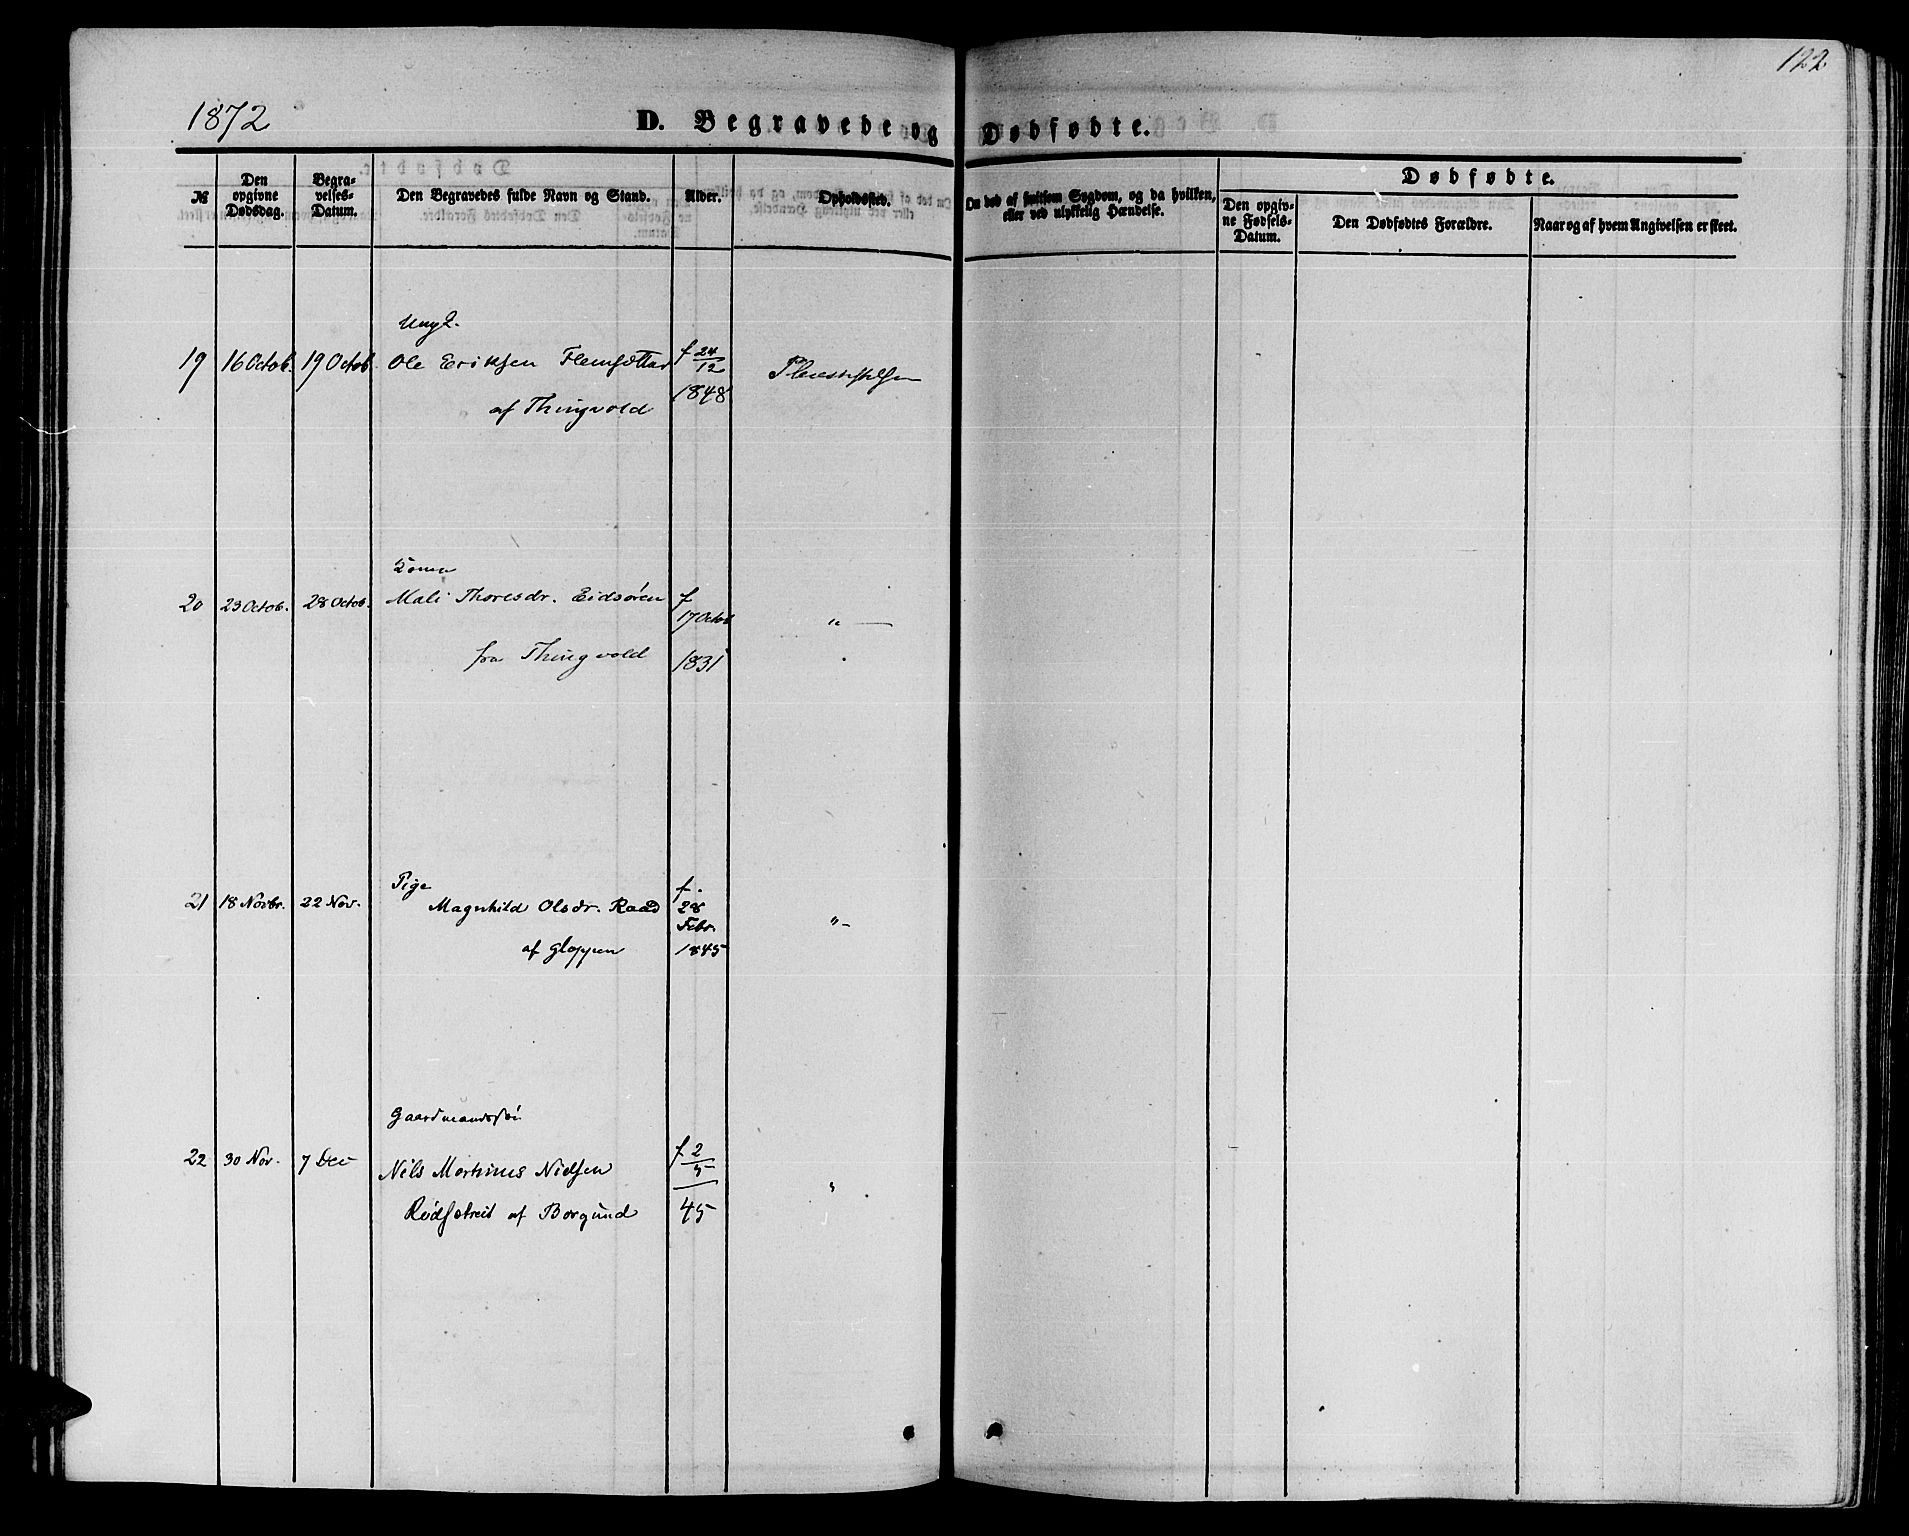 122
1872
D. Begravede og Dødfødte.
№
Den opgivne Dødsdag.
Begravelses-Datum.
Den Begravedes fulde Navn og Stand.
Alder.
Opholdssted.
Om død af smitsom Sygdom, og da hvilken, eller ved ulykkelig Hændelse.
Dødfødte.
Den opgivne Fødsels-Datum.
Den Dødfødtes Forældre.
Naar og af hvem Angivelsen er skeet.
Ungk.
19 16 Octob. 19 Octob. Ole Eriksen f 24/12
af Thingvold 1848
Kone
20 23 Octob. 28 Octob. Mali Thoresdr. Eidsören f
17 Octob "
fra Thingvold 1831
Pige f.
21 18 Novbr. 22 Nov. Magnhild Olsdr. Raad 28 "
Febr.
af Gloppen 1845
Gaardmandssön
22 30 Nov. 7 Dec Nils Martinus Nielsen f 2/5
af Borgund 45 "